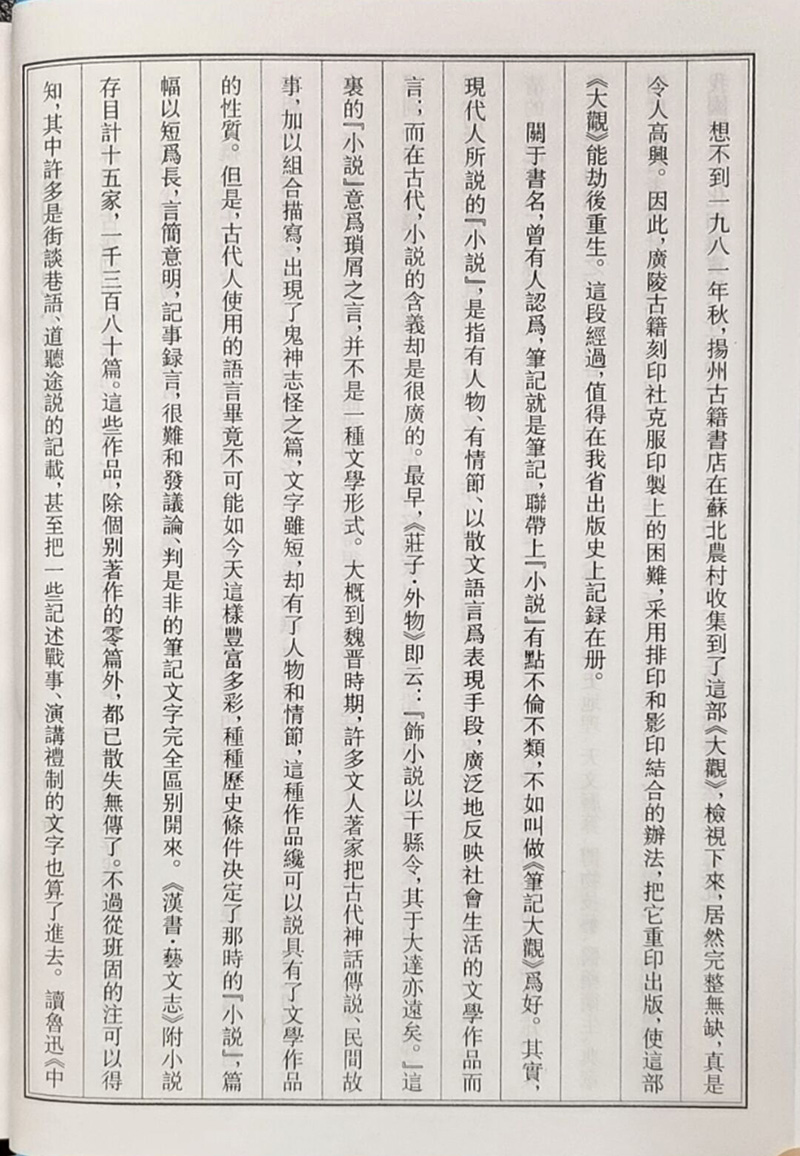 想不到一九八一年秋，揚州古籍書店在蘇北農村收集到了這部《大觀》，檢視下來，居然完整無缺，真是
令人高興。因此，廣陵古籍刻印社克服印製上的困難，采用排印和影印結合的辦法，把它重印出版，使這部
《大觀》能劫後重生。這段經過，值得在我省出版史上記録在册。
關于書名，曾有人認爲，筆記就是筆記，聯帶上『小説』有點不倫不類，不如叫做《筆記大觀》爲好。其實，
現代人所説的『小説』，是指有人物、有情節、以散文語言爲表現手段，廣泛地反映社會生活的文學作品而
言；而在古代，小説的含義却是很廣的。最早，《莊子·外物》即云：『飾小説以干縣令，其于大達亦遠矣。』這
裏的『小説』意爲瑣屑之言，并不是一種文學形式。大概到魏晋時期，許多文人著家把古代神話傳説、民間故
事，加以組合描寫，出現了鬼神志怪之篇，文字雖短，却有了人物和情節，這種作品纔可以説具有了文學作品
的性質。但是，古代人使用的語言畢竟不可能如今天這樣豐富多彩，種種歷史條件决定了那時的『小説』，篇
幅以短爲長，言簡意明，記事録言，很難和發議論、判是非的筆記文字完全區别開來。《漢書·藝文志》附小説
存目計十五家，一千三百八十篇。這些作品，除個别著作的零篇外，都已散失無傳了。不過從班固的注可以得
知，其中許多是街談巷語、道聽途説的記載，甚至把一些記述戰事、演講禮制的文字也算了進去。讀魯迅《中